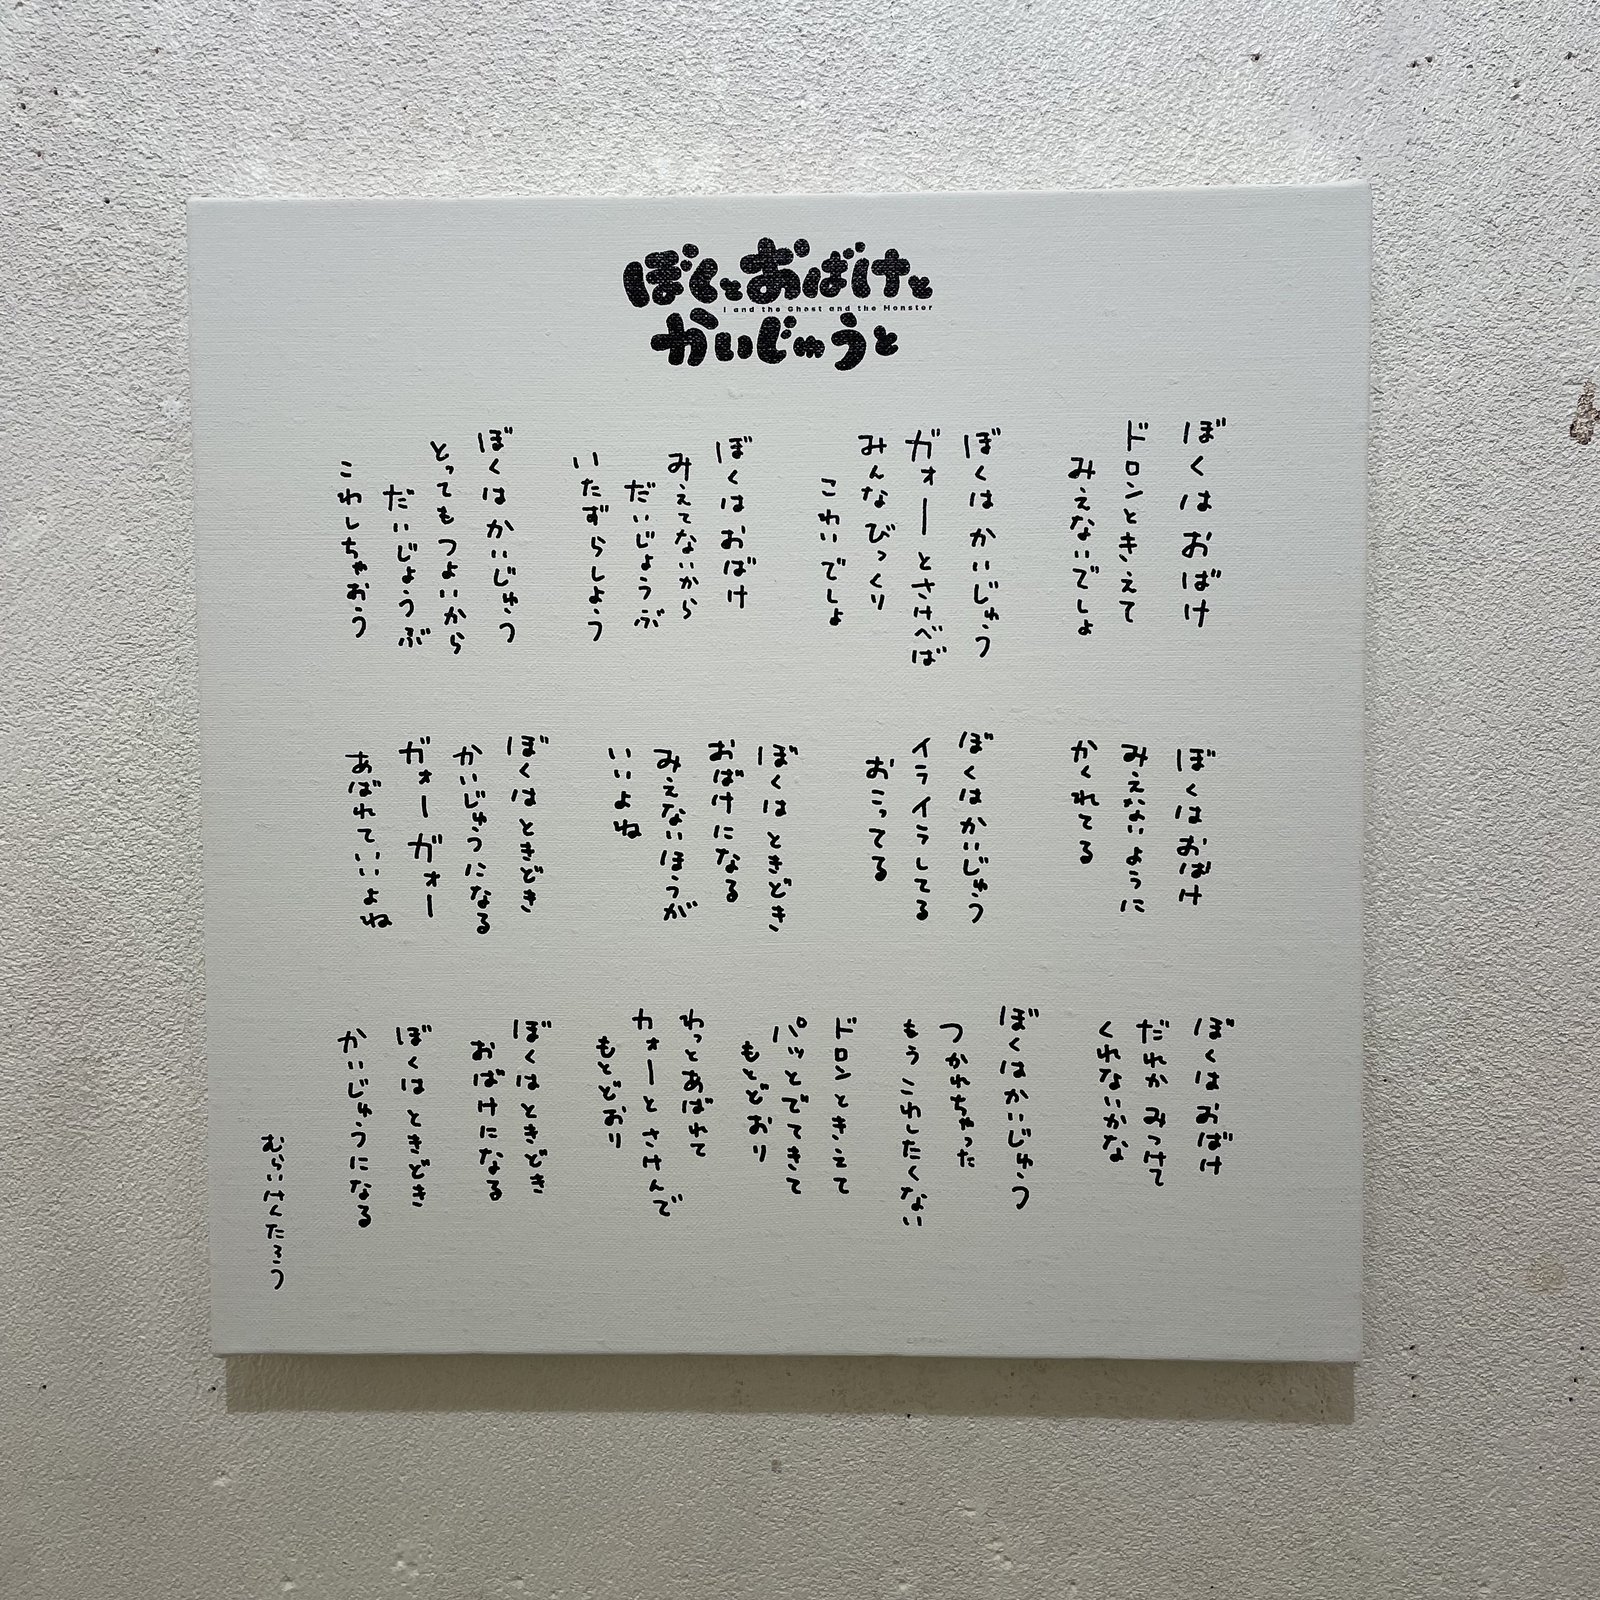 ぼくとおばけと
I and the Ghost and the Monster
かいじゅうと
ぼくは おばけ
ドロンときえて
みえないでしょ
ぼくは かいじゅう
ガォー とさけべば
みんなびっくり
こわいでしょ
ぼくは おばけ
みえてないから
だいじょうぶ
いたずらしよう
ぼくは かいじゅう
とっても つよいから
だいじょうぶ
こわしちゃおう
ぼくはおばけ
みえないように
かくれてる
ぼくはかいじゅう
イライラしてる
おこってる
ぼくは ときどき
おばけになる
みえないほうが
いいよね
ぼくは ときどき
かいじゅうになる
ガォー ガォー
あばれていいよね
ぼくは おばけ
だれか みつけて
くれないかな
ぼくはかいじゅう
つかれちゃった
もう こわしたくない
ドロン ときえて
パッとでてきて
もとどおり
わっとあばれて
カォーと さけんで
もとどおり
ぼくは ときどき
おばけになる
ぼくは ときどき
かいじゅうになる
むらいけんたろう